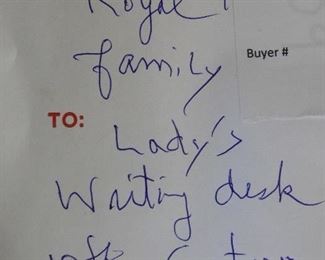 Royal
family
Buyer #
TO:
Lady's
Waiting desk